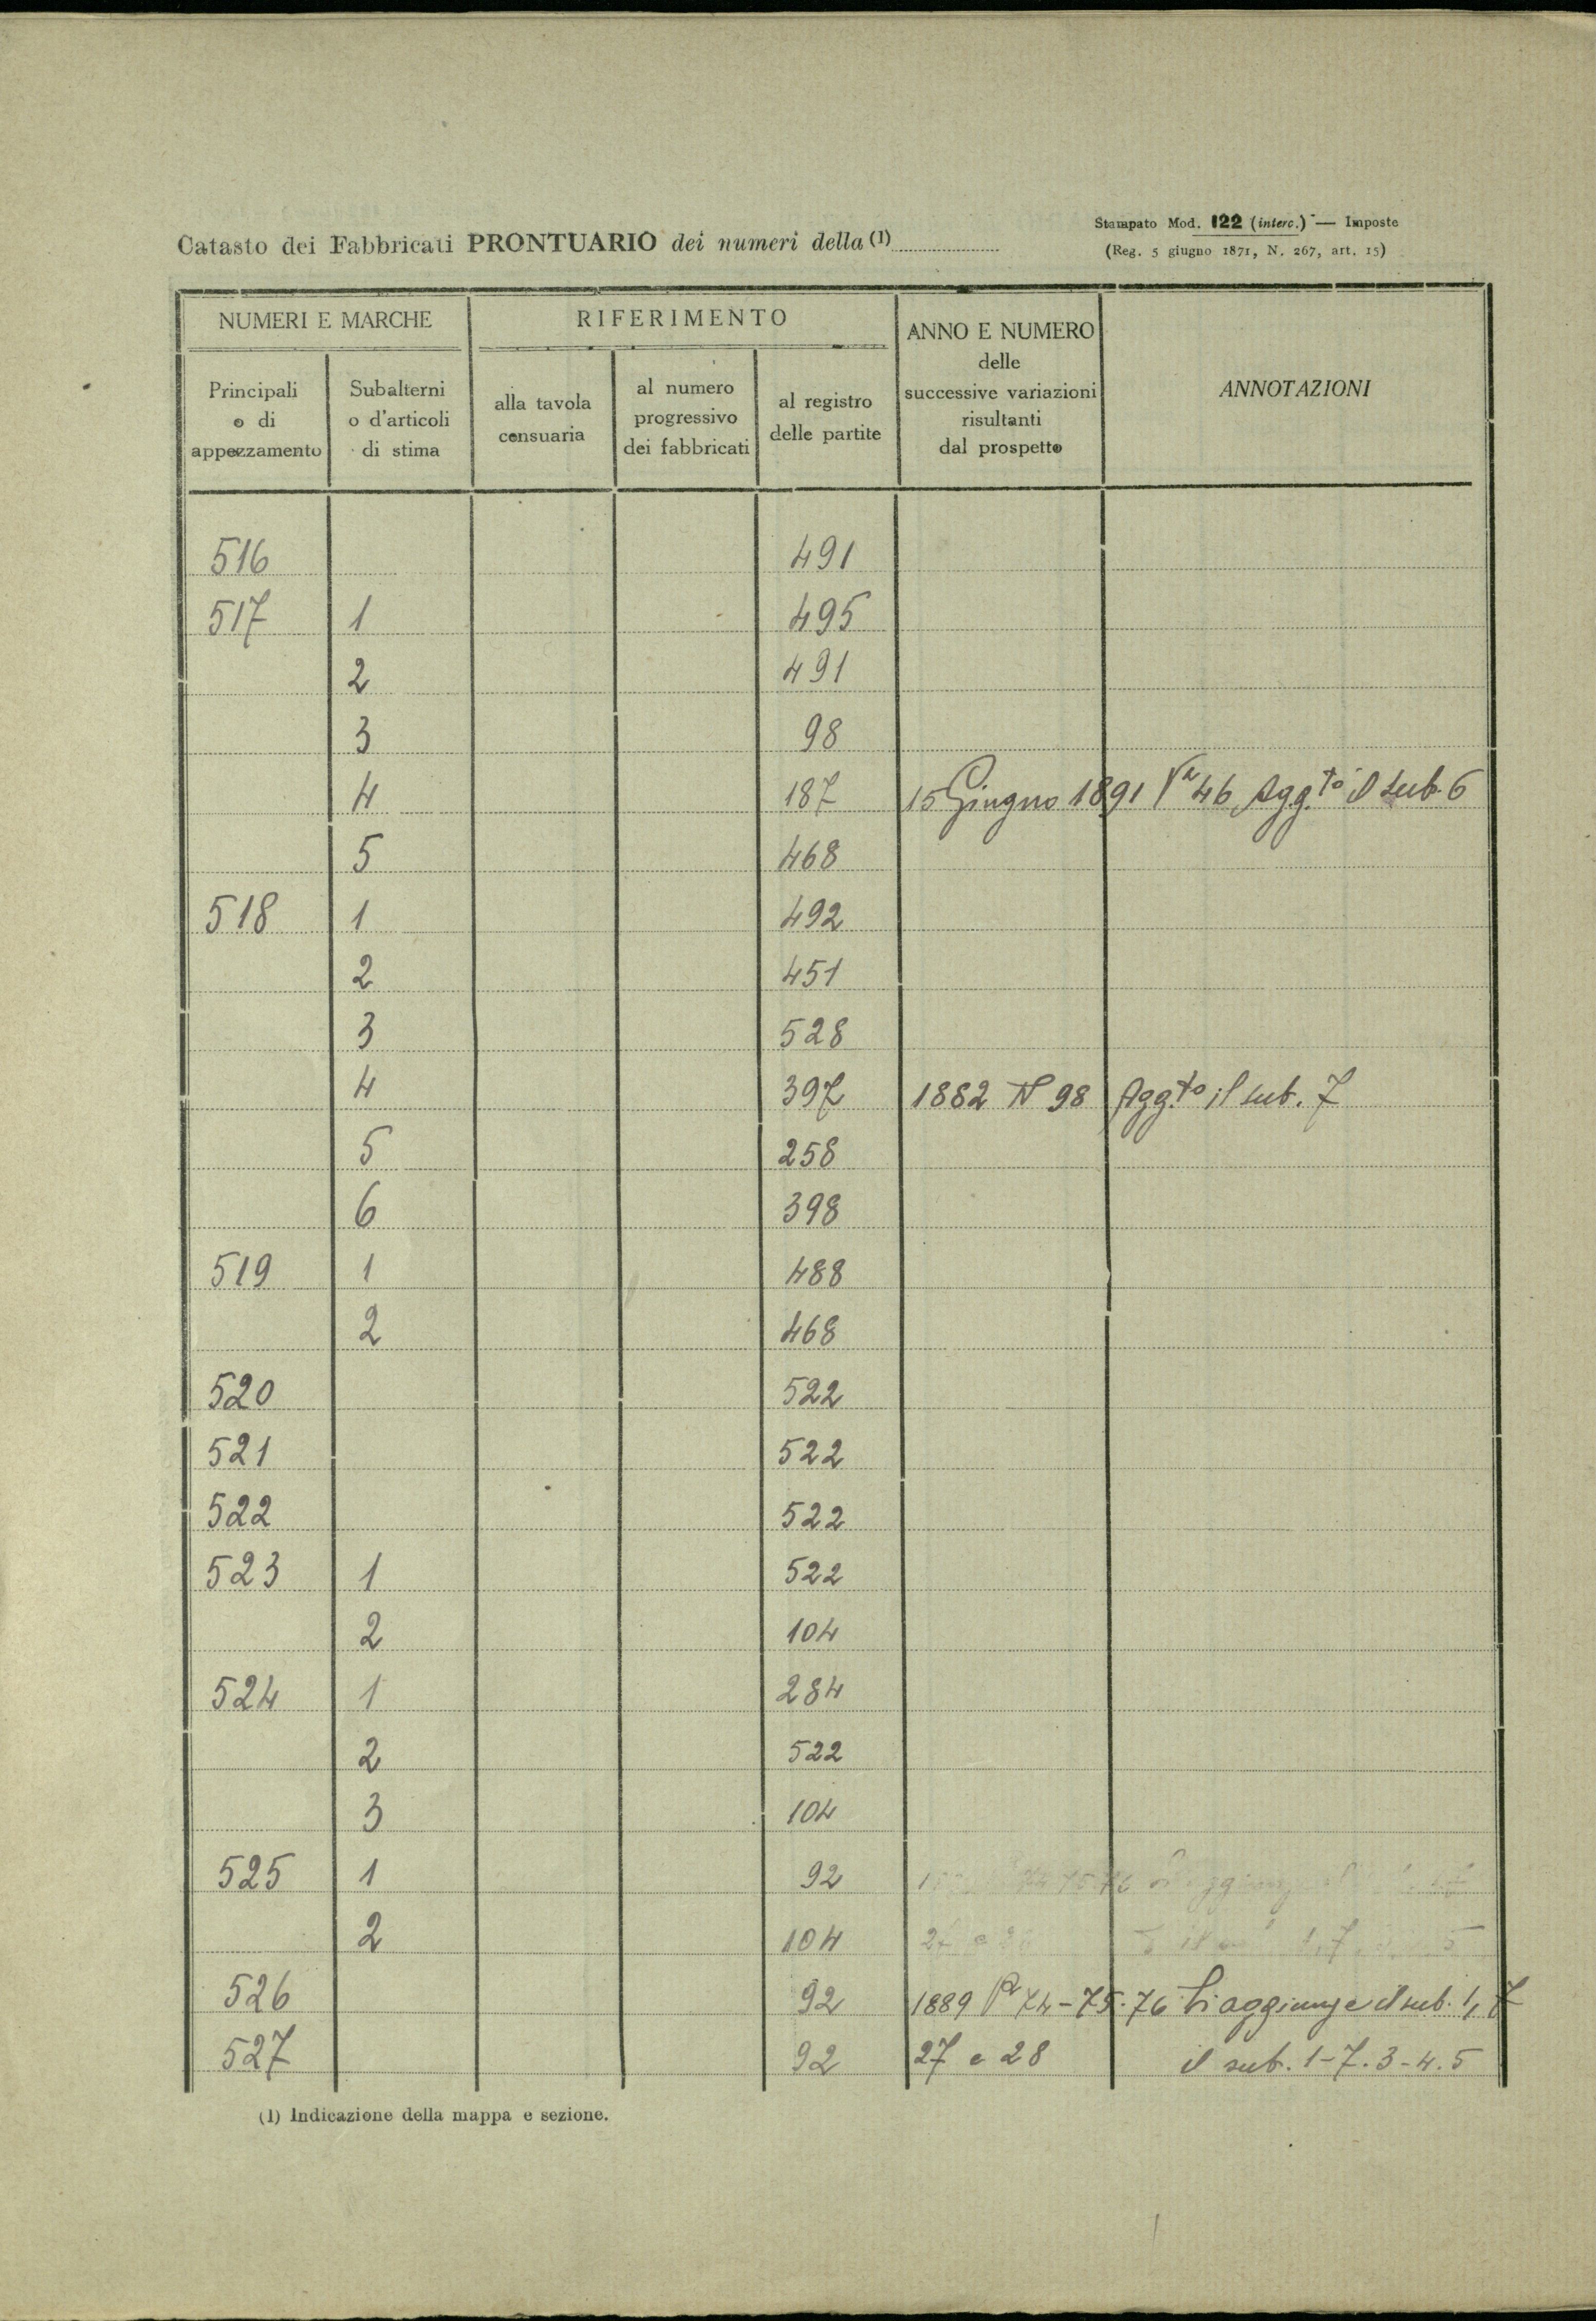 Stampato Mod. 122 (interc.) — Imposte
Catasto dei Fabbricati PRONTUARIO dei numeri della (1)
(Reg. 5 giugno 1871, N. 267, art. 15)
NUMERI E MARCHE
RIFERIMENTO
ANNO E NUMERO
delle
successive variazioni
risultanti
dal prospetto
ANNOTAZIONI
Principali
o di
appezzamento
Subalterni
o d'articoli
di stima
alla tavola
censuaria
al numero
progressivo
dei fabbricati
al registro
delle partite
516 491
517 1 495
2 491
3 98
4 187 15 Giugno 1891 Va 46 Agg.to il sub. 6
5 468
518 1 492
2 451
3 528
4 397 1882 N 98 Agg.to il sub. 7
5 258
6 398
519 1 488
2 468
520 522
521 522
522 522
523 1 522
2 104
524 1 284
2 522
3 104
525 1 92
2 104
526 92 1889 74-75-76 Si aggiunge il sub. 1, 7
527 92 27 e 28 il sub. 1-7.3-4.5
(1) Indicazione della mappa e sezione.